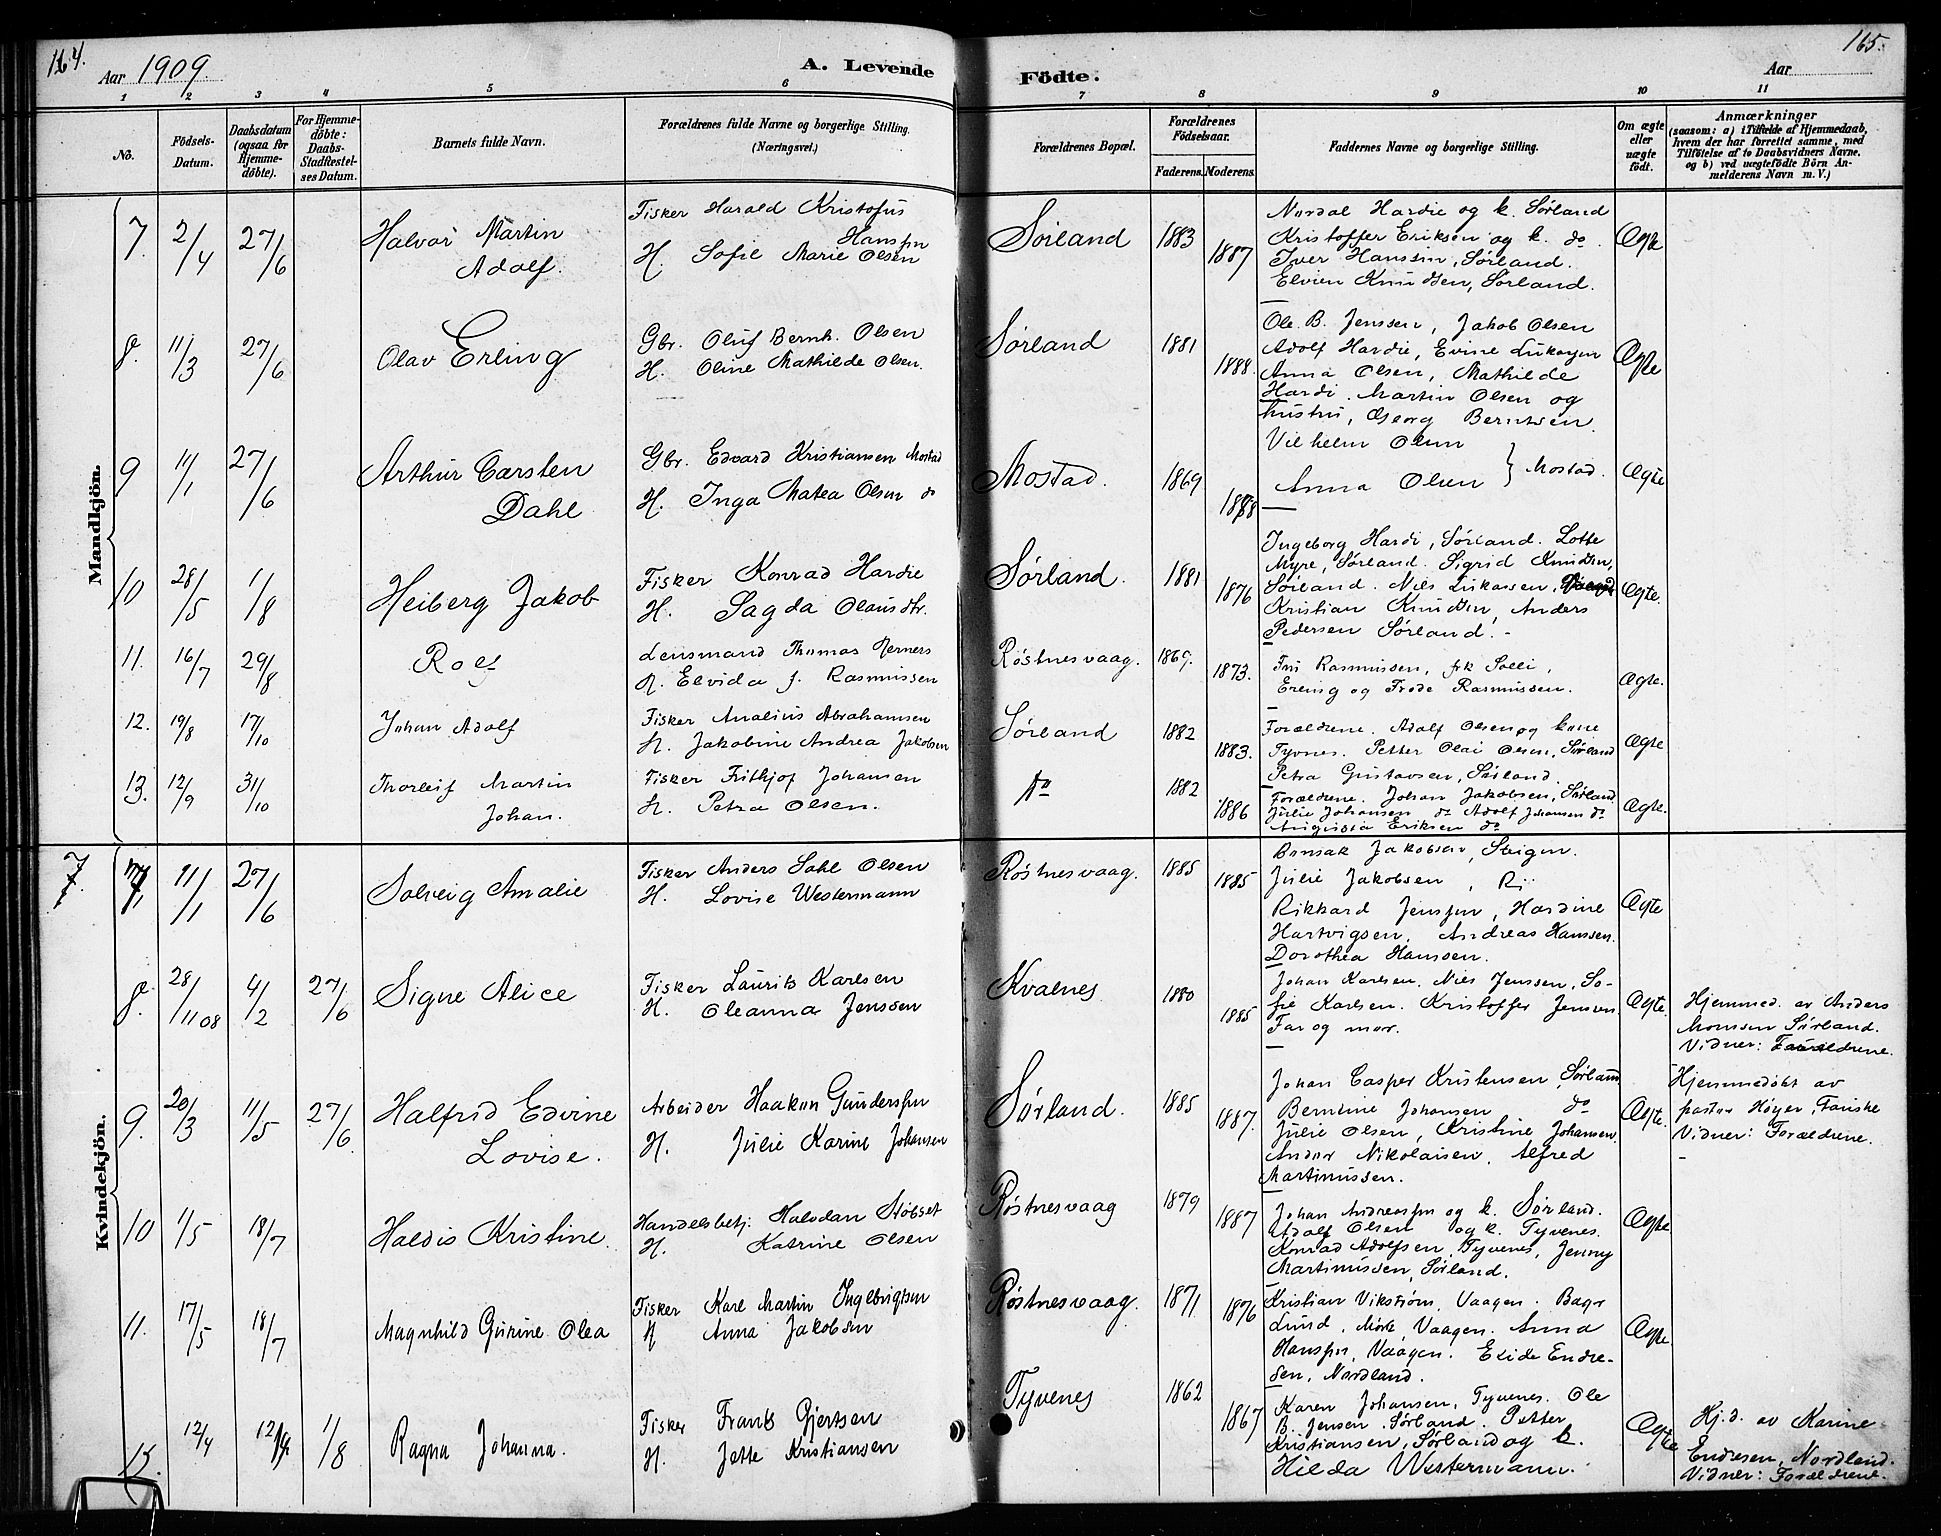 164.
Aar 1909.
A. Levende
Födte.
Aar
165.
1 2 3 4 5 6 7 8 9 10 11
No.
Födsels-Datum.
Daabsdatum (ogsaa for Hjemme-döbte).
For Hjemme-döbte: Daabs-Stadfæstel-ses Datum.
Barnets fulde Navn.
Forældrenes fulde Navne og borgerlige Stilling. (Næringsvei.)
Forældrenes Bopæl.
Forældrenes Födselsaar.
Faderens. Moderens.
Faddernes Navne og borgerlige Stilling.
Om ægte eller uægte födt.
Anmærkninger
(saasom: a) i Tilfælde af Hjemmedaab,
hvem der har forrettet samme, med
Tilföielse af to Daabsvidners Navne.
og b) ved uægtefödte Börn An-
melderens Navn m. V.)
Mandkjön.
7. 2/4 27/6 Halvor Martin Adolf.
Fisker Harald Kristofus Hanssen
H. Sofie Marie Olsen
Sørland 1883 1887
Nordal Hardie og k. Sørland
Kristoffer Eriksen og k. do.
Iver Hanssen, Sørland.
Elvien Knudsen, Sørland.
Ægte
8. 11/3 27/6 Olav Erling
Gbr. Oluf Bernh. Olsen
H. Oline Mathilde Olsen.
Sørland 1881 1888.
Ole B. Jenssen, Jakob Olsen
Adolf Hardie, Evine Lukasen
Anna Olsen, Mathilde
Hardi. Martin Olsen og
hustru, Georg Berntsen.
Ægte
9 11/1 27/6 Arthur Carsten Dahl
Gbr. Edvard Kristiansen Mostad
H. Inga Matea Olsen do
Mostad. 1869 1888
Vilhelm Olsen
Anna Olsen } Mostad.
Ægte
10 28/5 1/8 Heiberg Jakob
Fisker Konrad Hardie
H. Sagda Olausdtr.
Sørland. 1881 1876
Ingeborg Hardi, Sørland. Lotte
Myre, Sørland. Sigrid Knudsen,
Sørland. Nils Lukassen,
Kristian Knudsen, Anders
Pedersen Sørland.
Ægte.
11. 16/7 29/8 Rolf
Lensmand Thomas Rerners
H. Elvida f. Rasmussen
Røstnesvaag. 1869. 1873.
Fru Rasmussen, frk Solli,
Erling og Frode Rasmussen.
Ægte.
12. 19/8 17/10 Johan Adolf
Fisker Analius Abrahamsen
H. Jakobine Andrea Jakobsen
Sørland 1882 1883.
Forældrene. Adolf Olsen og kone
Tyvnes. Petter Olai Olsen, Sørland
Petra Gustavsen, Sørland.
Ægte
13. 12/9 31/10 Thorleif Martin Johan.
Fisker Frithjof Johansen
H. Petra Olsen.
do 1882 1886
Forældrene. Johan Jakobsen, Sørland
Julie Johansen do Adolf Johansen do
Augusta Eriksen do
Ægte.
Kvindekjön.
7. 11/1 27/6 Solveig Amalie
Fisker Anders Dahl Olsen
H. Lovise Westermann
Røstnesvaag. 1885 1885
Bonsak Jakobsen, Steigen.
Julie Jakobsen,
Rikkard Jenssen, Hardine
Hartvigsen, Andreas Hanssen.
Dorothea Hanssen.
Ægte
8. 28/11 08 4/2 27/6 Signe Alice
Fisker Laurits Karlsen
H. Oleanna Jenssen
Kvalnes 1880 1885
Johan Karlsen, Nils Jenssen, So-
fie Karlsen. Kristoffer Jensen
Far og mor.
Ægte.
Hjemmed. av Anders
Monssen Sørland.
Vidner: Forældrene.
9. 20/3 11/5 27/6 Halfrid Edvine Lovise.
Arbeider Haakon Gunderssen
H. Julie Karine Johansen
Sørland. 1885 1887.
Johan Casper Kristensen, Sørland
Berntine Johansen do
Julie Olsen, Kristine Johansen,
Andor Nikolaisen, Alfred
Martinussen.
Ægte.
Hjemmedøbt av
pastor Høyer, Fauske
Vidner: Forældrene.
10 1/5 18/7 Haldis Kristine.
Handelsbetj. Halvdan Støbset
H. Katrine Olsen
Røstnesvaag 1879 1887
Johan Andreassen og k. Sørland.
Adolf Olsen og k. Tyvenes.
Konrad Adolfsen, Tyvenes, Jenny
Martinussen, Sørland.
Ægte.
11. 17/5 18/7 Magnhild Gurine Olea
Fisker Karl Martin Ingebrigtsen
H Anna Jakobsen
Røstnesvaag. 1871 1876
Kristian Vikstrøm, Vaagen.
Lund, Vaagen. Anna
Hanssen, Vaagen. Elide Endre-
sen, Nordland.
Ægte
12/4 1/8 Ragna Johanna.
Fisker Frants Gjertsen
H. Jette Kristiansen
Tyvenes 1862 1867
Karen Johansen, Tyvenes. Ole
B. Jensen. Sørland. Petter
Kristiansen, Sørland og k.
Hilda Westermann.
Ægte
Hj. d. av Karine
Endresen, Nordland.
Vidner: Forældrene.